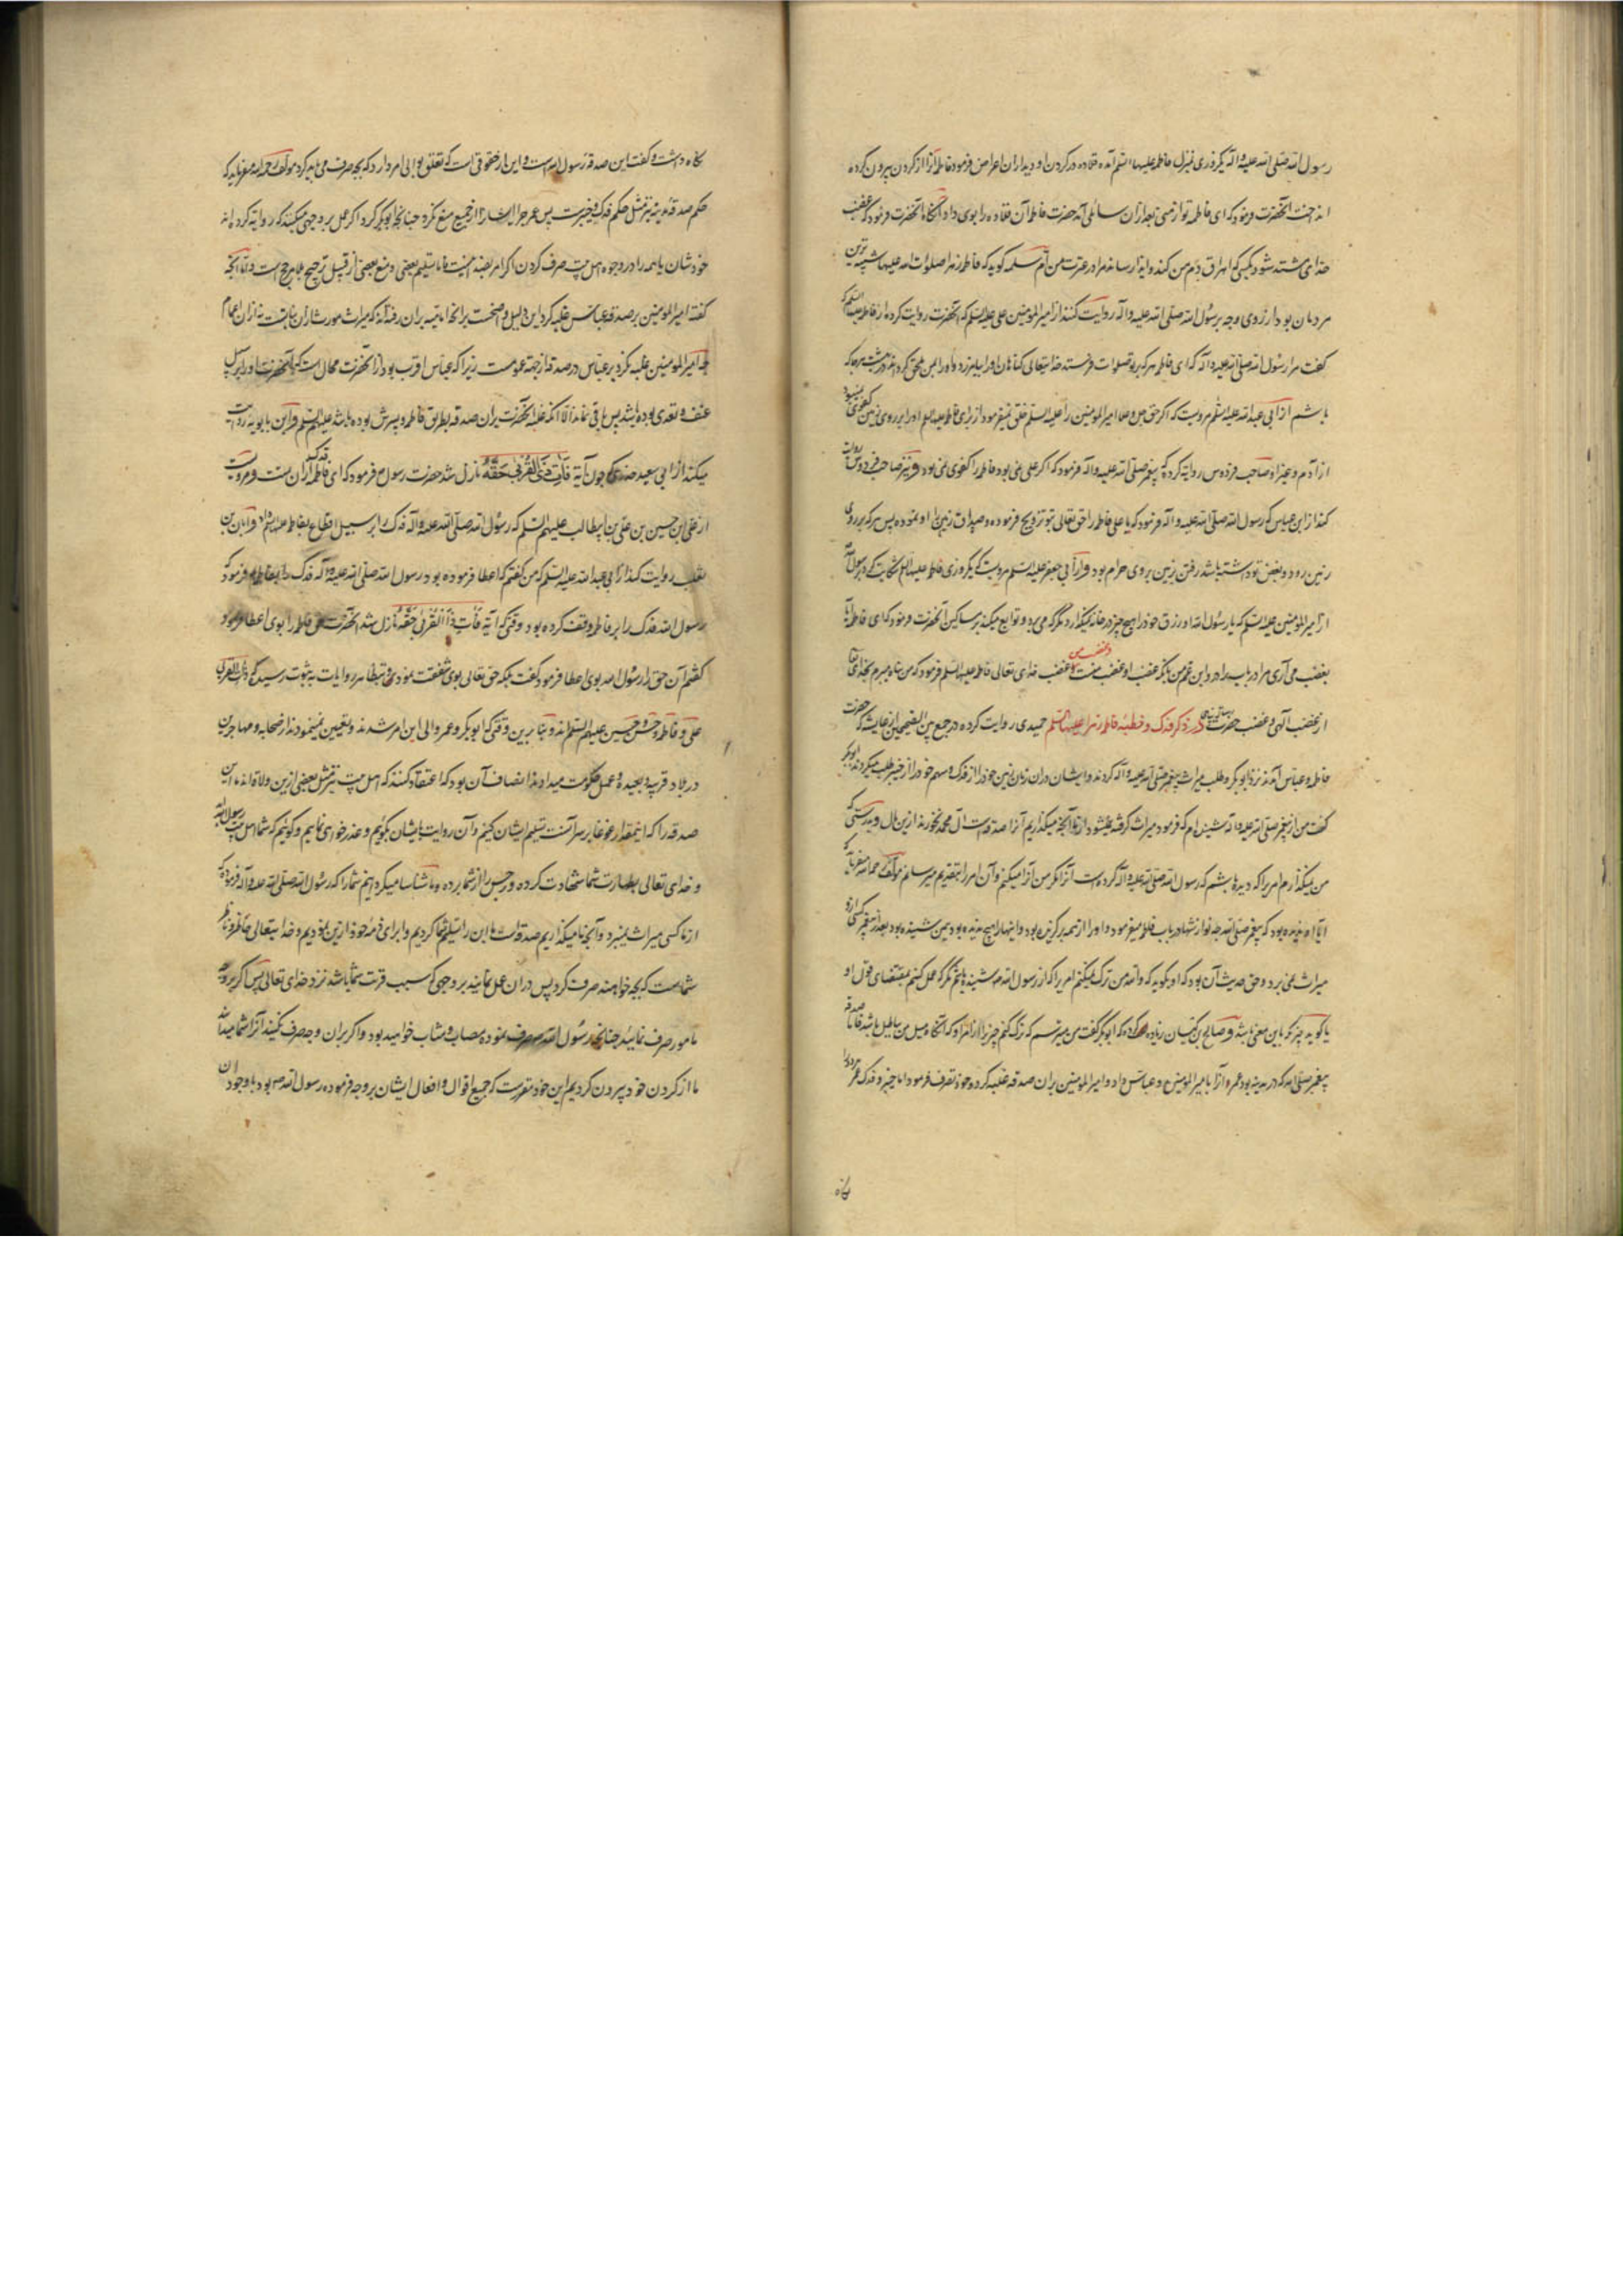 رسول الله صلی الله علیه و آله یکروزی بمنزل فاطمه علیها السلم آمده قلاده در گردن او دید از آن اعراض فرمود فاطمه آنرا از گردن بیرون کرده
انداخت آنحضرت فرمود که ای فاطمه تو از منی بعد از آن سائلی آمد حضرت فاطمه آن قلاده را بوی داد آنگاه آنحضرت فرمود که غضب
خدای مشتد شود بکسی که اهراق دم من کند و ایذا رساند مرا در عترت من ام سلمه گوید که فاطمه زهرا صلوات الله علیها شبیه ترین
مردمان بود از روی وجه برسول الله صلی الله علیه و آله روایت کنند از امیر المؤمنین علی علیه السلم که آنحضرت روایت کرده از فاطمه علیها السلم که
گفت مرا رسول الله صلی الله علیه و آله که ای فاطمه هر که بر تو صلوات فرستد خدایتعالی گناهان او را بیامرزد و او را بمن ملحق گرداند در بهشت هر جا که
باشم از ابی عبد الله علیه السلم مرویست که اگر حق جل و علا امیر المؤمنین را علیه السلم خلق نمیفرمود از برای فاطمه علیها السلم او را بر روی زمین کفوی نمیبود
از آدم و غیر او صاحب فردوس روایة کرده که پیغمبر صلی الله علیه و آله فرمود که اگر علی نمی بود فاطمه را کفوی نمی بود و نیز صاحب فردوس روایت
کند از ابن عباس که رسول الله صلی الله علیه و آله فرمود که یا علی فاطمه را حق تعالی بتو تزویج فرموده و صداق زمین را او نموده پس هر که بر روی
زمین رود و بغض تو داشته باشد رفتن زمین بر وی حرام بود و از ابی جعفر علیه السلم مرویست که یکروزی فاطمه علیها السلم شکایت کرد برسول الله
از امیر المؤمنین علیه السلم که یا رسول الله او رزق خود را هیچ چیز در خانه نمیگذارد مگر که می برد و توزیع میکند بر مساکین آنحضرت فرمود که ای فاطمه آیا
بغضب می آری مرا در باب برادر و ابن عم من بدانکه غضب او غضب منست و غضب من غضب خدای تعالی فاطمه علیها السلم فرمود که من پناه میبرم بخدای تعالی
از غضب الهی و غضب حضرت رسالت پناهی در ذکر فدک و خطبه فاطمه زهرا علیها السلم حمیدی روایت کرده در جمع بین الصحیحین از عایشه که حضرت
فاطمه و عباس آمدند نزد ابوبکر و طلب میراث پیغمبر صلی الله علیه و آله کردند و ایشان در آن زمان زمین خود را از فدک و سهم خود را از خیبر طلب میکردند ابوبکر
گفت من از پیغمبر صلی الله علیه و آله شنیده ام که فرمود میراث گرفته نمیشود از ما آنچه میگذاریم آنرا صدقه است آل محمد نخورند ازین مال و بدرستی که
من نمیگذارم امریرا که دیده باشم که رسول الله صلی الله علیه و آله کرده است آنرا مگر من آنرا میکنم و آن امر را بتقدیم میرسانم مؤلف رحمه الله میفرماید که
میراث نمی برد و حق حدیث آن بود که او بگوید که والله من ترک نمیکنم امریرا که از رسول الله شنیده باشم مگر که عمل کنم بمقتضای قول او
یا گوید چیزی که باین معنی باشد و صالح بن کیسان زیاده کرده که ابوبکر گفت من میترسم که ترک کنم چیزیرا از امر او که آنگاه میل من بباطل باشد فاما صدقه
پیغمبر صلی الله که در مدینه بود عمر آنرا بامیر المؤمنین و عباس داد و امیر المؤمنین بر آن صدقه غلبه کرد و خود تصرف فرمود اما خیبر و فدک عمر هر دو را
نگاه
نگاه داشت و گفت این صدقه رسول الله است و این از حقوقی است که تعلق بوالی امر دارد که بچه صرف می باید کرد مؤلف رحمه الله میفرماید که
حکم صدقه مدینه نیز مثل حکم فدک و خیبرست پس عمر چرا ایشانرا از جمیع منع نکرد چنانچه ابوبکر کرد اگر عمل بر وجهی میکنند که روایة کرده اند
خودشان یا همه را در وجوه اهل بیت صرف کردن اگر امر بضد اینست فاما تسلیم بعضی و منع بعضی از قبیل ترجیح بلا مرجح است و اما آنچه
گفته امیر المؤمنین بر صدقه عباس غلبه کرد این دلیل واضحست بر آنچه امامیه بر آن رفته اند که میراث مورث از آن بناتست نه از آن اعمام
چه امیر المؤمنین غلبه نکرد بر عباس در صدقه از جهة عمومت زیرا که عباس اقرب بود از آنحضرت
عنف و تعدی بوده باشد پس باقی نماند الا آنکه غلبه آنحضرت بر آن صدقه بطریق فاطمه و پسرش بوده باشد علیهم السلم و ابن بابویه روایت
میکند از ابی سعید خدری چون آیة فَآتِ ذَا الْقُرْبی حَقَّهُ نازل شد حضرت رسول فرمود که ای فاطمه فدک از آن تست و مرویست
از علی بن حسین بن علی بن ابیطالب علیهم السلم که رسول الله صلی الله علیه و آله فدک را بر سبیل اقطاع بفاطمه علیها السلم داد و ابان بن
تغلب روایت کند از ابی عبد الله علیه السلم که من گفتم که اعطا فرموده بود رسول الله صلی الله علیه و آله فدک را بفاطمه فرمود که
رسول الله فدک را بر فاطمه وقف کرده بود وقتی که آیه فَآتِ ذَا الْقُرْبی حَقَّهُ نازل شد آنحضرت حق فاطمه را بوی اعطا فرمود
گفتم آن حق را رسول الله بوی اعطا فرمود گفت بلکه حق تعالی بوی شفقت نمود و بتظاهر روایات به ثبوت رسید که ذی القربی
علی و فاطمه و حسن و حسین علیهم السلم اند و بنا برین وقتی که ابوبکر و عمر والی این امر شدند و تعیین نمیمودند از صحابه و مهاجرین
در بلاد قریبه و بعیده و عمل حکومت میدادند انصاف آن بود که اعتقاد کنند که اهل بیت نیز مثل بعضی ازین ولاة اند این
صدقه را که اینمقدار غوغا بر سر آنست تسلیم ایشان کنیم و آن روایت بایشان بگوئیم و عذر خواهی نمائیم و گوئیم که شما اهل بیت رسول الله اید
و خدای تعالی بطهارت شما شهادت کرده و رجس را از شما برده و ما شناسا میگردانیم شما را که رسول الله صلی الله علیه و آله فرموده که
از ما کسی میراث نمیبرد و آنچه ما میگذاریم صدقه است ما این را تسلیم شما کردیم و ابرای ذمه خود ازین نمودیم و خدایتعالی حاضر و ناظر
شماست که بچه خواهند صرف کرد پس در آن عمل نمایند بر وجهی که سبب قربت شما باشد نزد خدای تعالی پس اگر بر وجه
مأمور صرف نمائید چنانچه رسول الله صرف نموده مصاب و مثاب خواهید بود و اگر بر آن وجه صرف نکنید آنرا شما میدانید
ما از گردن خود بیرون کردیم این خود مقررست که جمیع اقوال و افعال ایشان بر وجه فرموده رسول الله بود با وجود آن